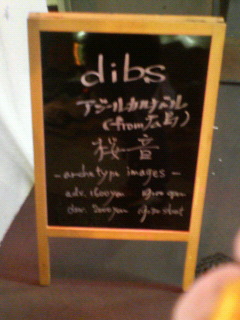 dibs
アジールカルナバル
(from 広島)
桟音
- archetype images -
adv. 1600yen
door. 2000yen